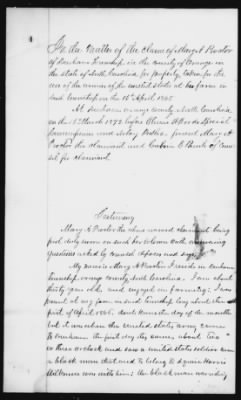 In the Matter of the claim of Mary A Proctor
of Durham Township in the County of Orange in
the state of North Carolina for property taken for the
use of the army of the united states at her farm in
said township on the 15th April 1865
At Durham orange county North Carolina
on the 18th March 1873 before Special
Commissioner and Notary Public present Mary A
Proctor the claimant and of Coun
sel for claimant
Testimony
Mary A Proctor the above named claimant being
first duly sworn on such her answering
questions asked by
My name is Mary A Proctor I reside in Durham
township orange county North Carolina. I am about
thirty years old and engaged in farming: I was
present at my farm in said township about the
first of April 1865. dont know the day of the months
but it was when the united states army came
to Durham. the first day they came, about two
or three o'clock and saw a united states soldier and
a black man that used to belong to
was with him: the black man